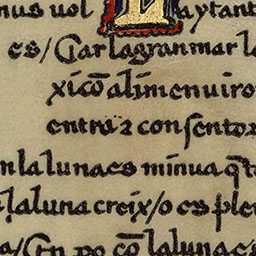 nus uol L aytant
es/ Car la gran mar la
xi cō alimenuiro
entra2 consento2
n la lunaes minua q̄
la luna creix/o es ple
/ Een po cō la lunaes